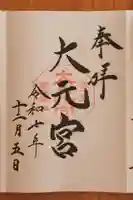 奉拝
大元宮
令和七年
十二月五日